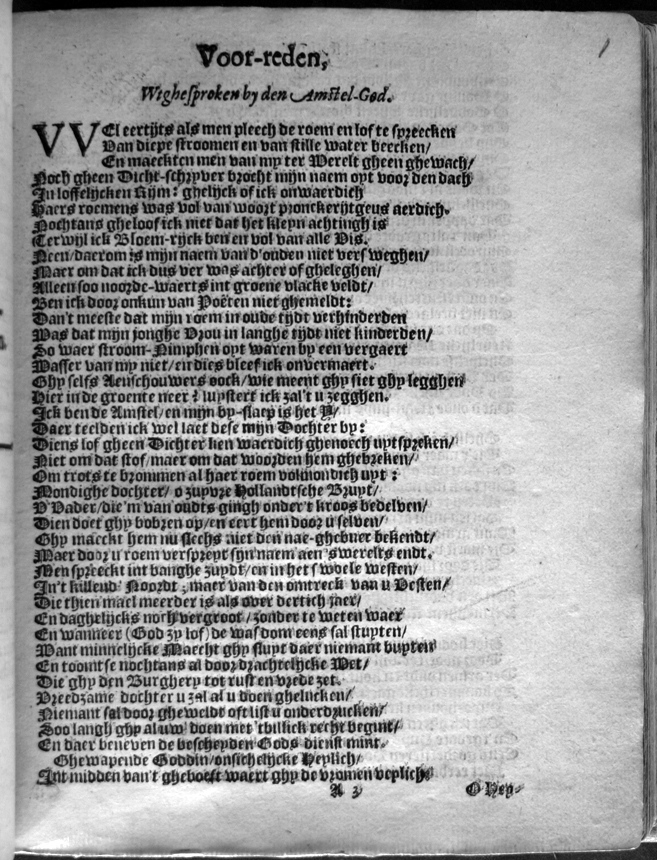 1
Voor-reden,
Wtghesproken by den Amstel-God.
VVEl eertijts als men pleech de roem en lof te spreecken
Van diepe stroomen en van stille water beecken/
En maeckten men van my ter Werelt gheen ghewach/
Noch gheen Dicht-schryver brocht mijn naem oyt voor den dach
In loffelijcken Rijm: ghelijck of ick onwaerdich
Haers roemens was vol van woort pronckerijtgeus aerdich.
Nochtans gheloof ick niet dat het kleyn achtingh is
Terwijl ick Bloem-rijck ben en vol van alle Vis.
Neen/daerom is mijn naem van d'ouden niet versweghen/
Maer om dat ick dus ver was achter of gheleghen/
Alleen soo noorde-waerts int groene vlacke veldt/
Ben ick door onkun van Poëten niet ghemeldt:
Dan't meeste dat mijn roem in oude tijdt verhinderden
Was dat mijn jonghe Vrou in langhe tijdt niet kinderden/
So waer stroom-Nimphen oyt waren by een vergaert
Wasser van my niet/en dies bleef ick onvermaert.
Ghy selfs Aenschouwers oock/wie meent ghy siet ghy legghen
Hier in de groente neer? luystert ick zal't u zegghen.
Ick ben de Amstel/en mijn by-slaep is het Y/
Daer teelden ick wel laet dese mijn Dochter by:
Diens lof gheen Dichter ken waerdich ghenoech uytspreken/
Niet om dat stof/maer om dat woorden hem ghebreken/
Om trots te brommen al haer roem volmondich uyt:
Mondighe dochter/o zuyvre Hollandtsche Bruyt/
V Vader/die'm van oudts gingh onder't kroos bedelven/
Dien doet ghy bobren op/en eert hem door u selven/
Ghy maeckt hem nu slechs niet den nae-ghebuer bekendt/
Maer door u roem verspreyt sijn naem aen 'swerelts endt.
Men spreeckt int banghe zuydt/en in het swoele westen/
In't killend' Noordt; maer van den omtreck van u Vesten/
Die thien mael meerder is als over dertich jaer/
En daghelijcks noch vergroot/zonder te weten waer
En wanneer (God zy lof) de wasdom eens sal stuyten/
Want minnelijcke Maecht ghy sluyt daer niemant buyten
En toomt se nochtans al door drachtelijcke Wet/
Die ghy den Burghery tot rust en vrede zet.
Vreedzame dochter u zal al u doen ghelucken/
Niemant sal door gheweldt oft list u onderdrucken/
Soo langh ghy al uw' doen met 'tbillick recht begint/
En daer beneven de bescheyden Gods dienst mint.
Ghewapende Goddin/onsichelijcke Heylich/
Int midden van't gheboeft waert ghy de vromen veylich
A 3 O Hey-